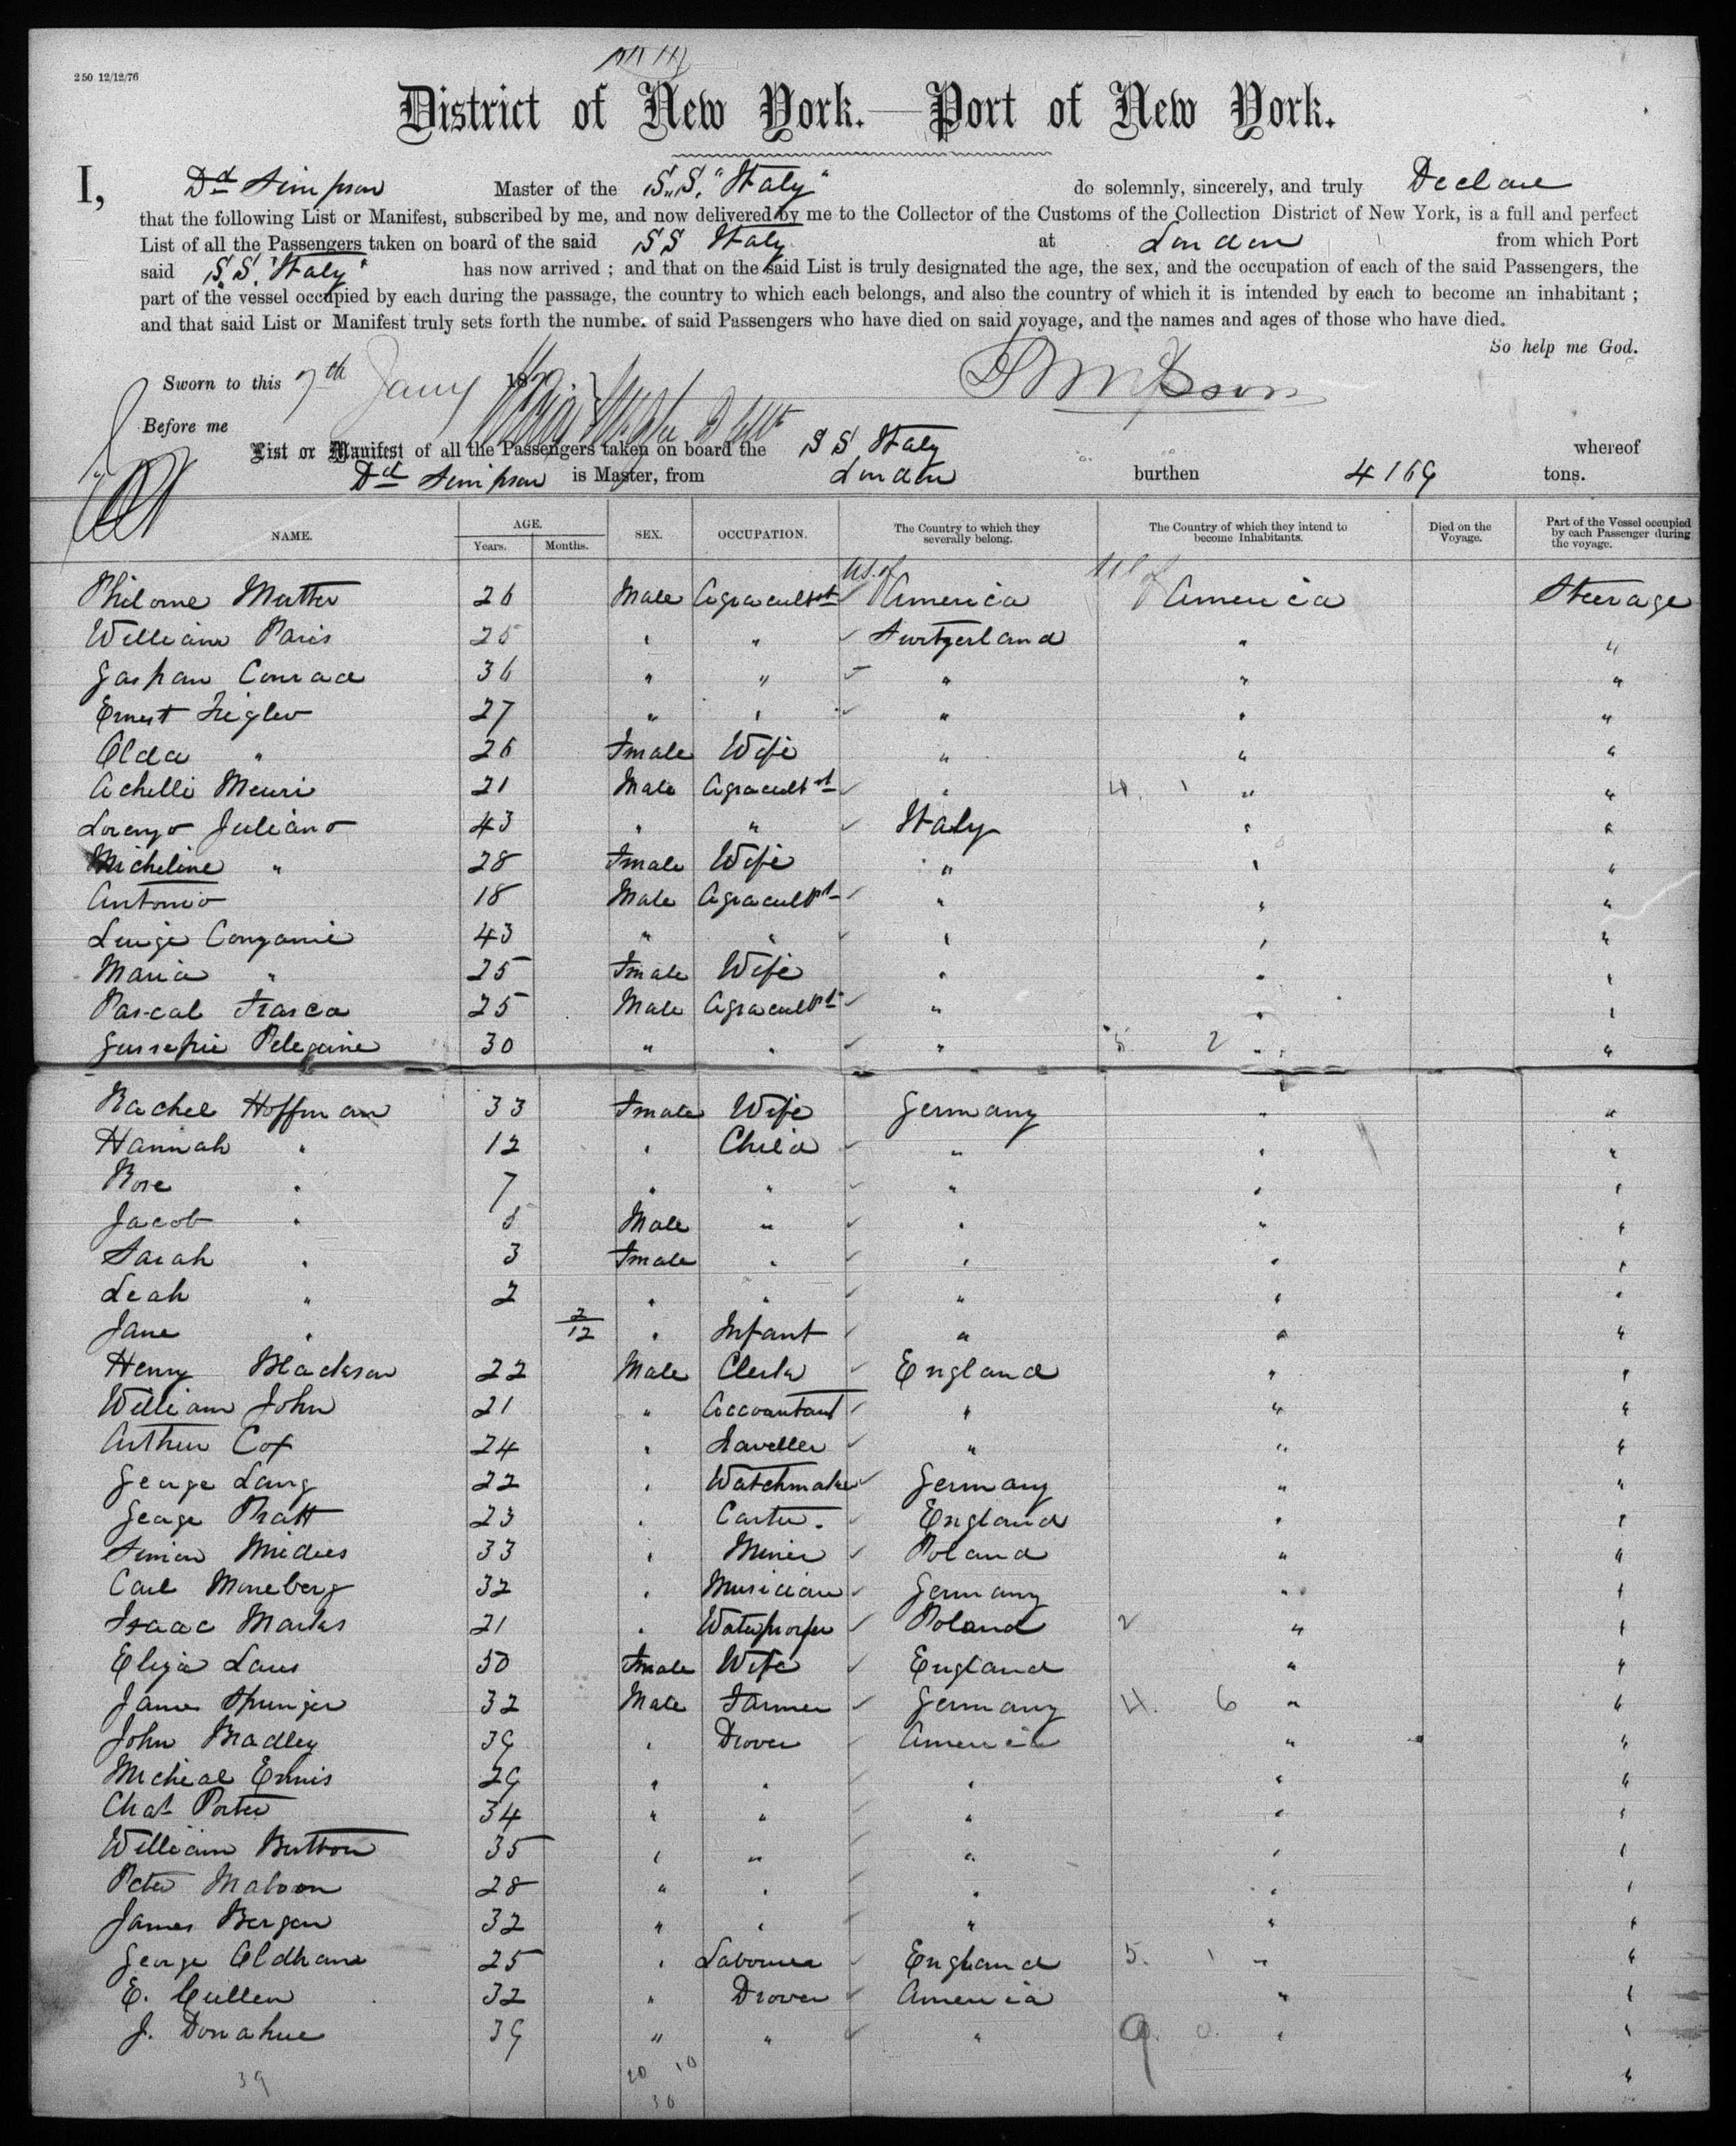 250 12/12/76
District of New York.—Port of New York.
I, Dd Simpson Master of the S.S. "Italy" do solemnly, sincerely, and truly Declare
that the following List or Manifest, subscribed by me, and now delivered by me to the Collector of the Customs of the Collection District of New York, is a full and perfect
List of all the Passengers taken on board of the said SS Italy at London from which Port
said S.S. "Italy" has now arrived ; and that on the said List is truly designated the age, the sex, and the occupation of each of the said Passengers, the
part of the vessel occupied by each during the passage, the country to which each belongs, and also the country of which it is intended by each to become an inhabitant ;
and that said List or Manifest truly sets forth the number of said Passengers who have died on said voyage, and the names and ages of those who have died.
So help me God.
Sworn to this 7th Jany 187 DSimpson
Before me
List or Manifest of all the Passengers taken on board the SS Italy whereof
Dd Simpson is Master, from London burthen 4169 tons.
NAME. AGE. Years. Months. SEX. OCCUPATION. The Country to which they severally belong. The Country of which they intend to become Inhabitants. Died on the Voyage. Part of the Vessel occupied by each Passenger during the voyage.
Philome Mutter 26 Male Agracultst U.S. of America U.S. of America Steerage
William Paris 25 " " Switzerland " "
Gaspan Conrad 36 " " " " "
Ernest Zigler 27 " " " " "
Olda " 26 Fmale Wife " " "
Achelli Meuri 21 Male Agracultst " 4. 1 " "
Lorenzo Juliano 43 " " Italy " "
Micheline " 28 Fmale Wife " " "
Antonio 18 Male Agracultst " " "
Luige Conzanie 43 " " " " "
Maria " 25 Fmale Wife " " "
Pascal Frasca 25 Male Agracultst " " "
Gussepie Pelegrine 30 " " " 5 2 " "
Rachel Hoffman 33 Fmale Wife Germany " "
Hannah " 12 " Child " " "
Rose " 7 " " " " "
Jacob " 5 Male " " " "
Sarah " 3 Fmale " " " "
Leah " 2 " " " " "
Jane " 2/12 " Infant " " "
Henry Blackson 22 Male Clerk England " "
William John 21 " Accountant " " "
Arthur Cox 24 " Traveller " " "
George Lang 22 " Watchmaker Germany " "
George Pratt 23 " Carter. England " "
Simon 33 " Miner Poland " "
Carl Moneberg 32 " Musician Germany " "
Isaac Marks 21 " Waterproofer Poland 2 " "
Eliza Laws 50 Fmale Wife England " "
James Springer 32 Male Farmer Germany 4. 6 " "
John Bradley 39 " Drover America " "
Micheal Ennis 29 " " " " "
Chas Porter 34 " " " " "
William Button 35 " " " " "
Peter Maloon 28 " " " " "
James Bergen 32 " " " " "
George Oldham 25 " Labourer England 5. 1 " "
E. Cullen 32 " Drover America " "
J. Donahue 39 " " " 9. 0. " "
39 20 10 "
30